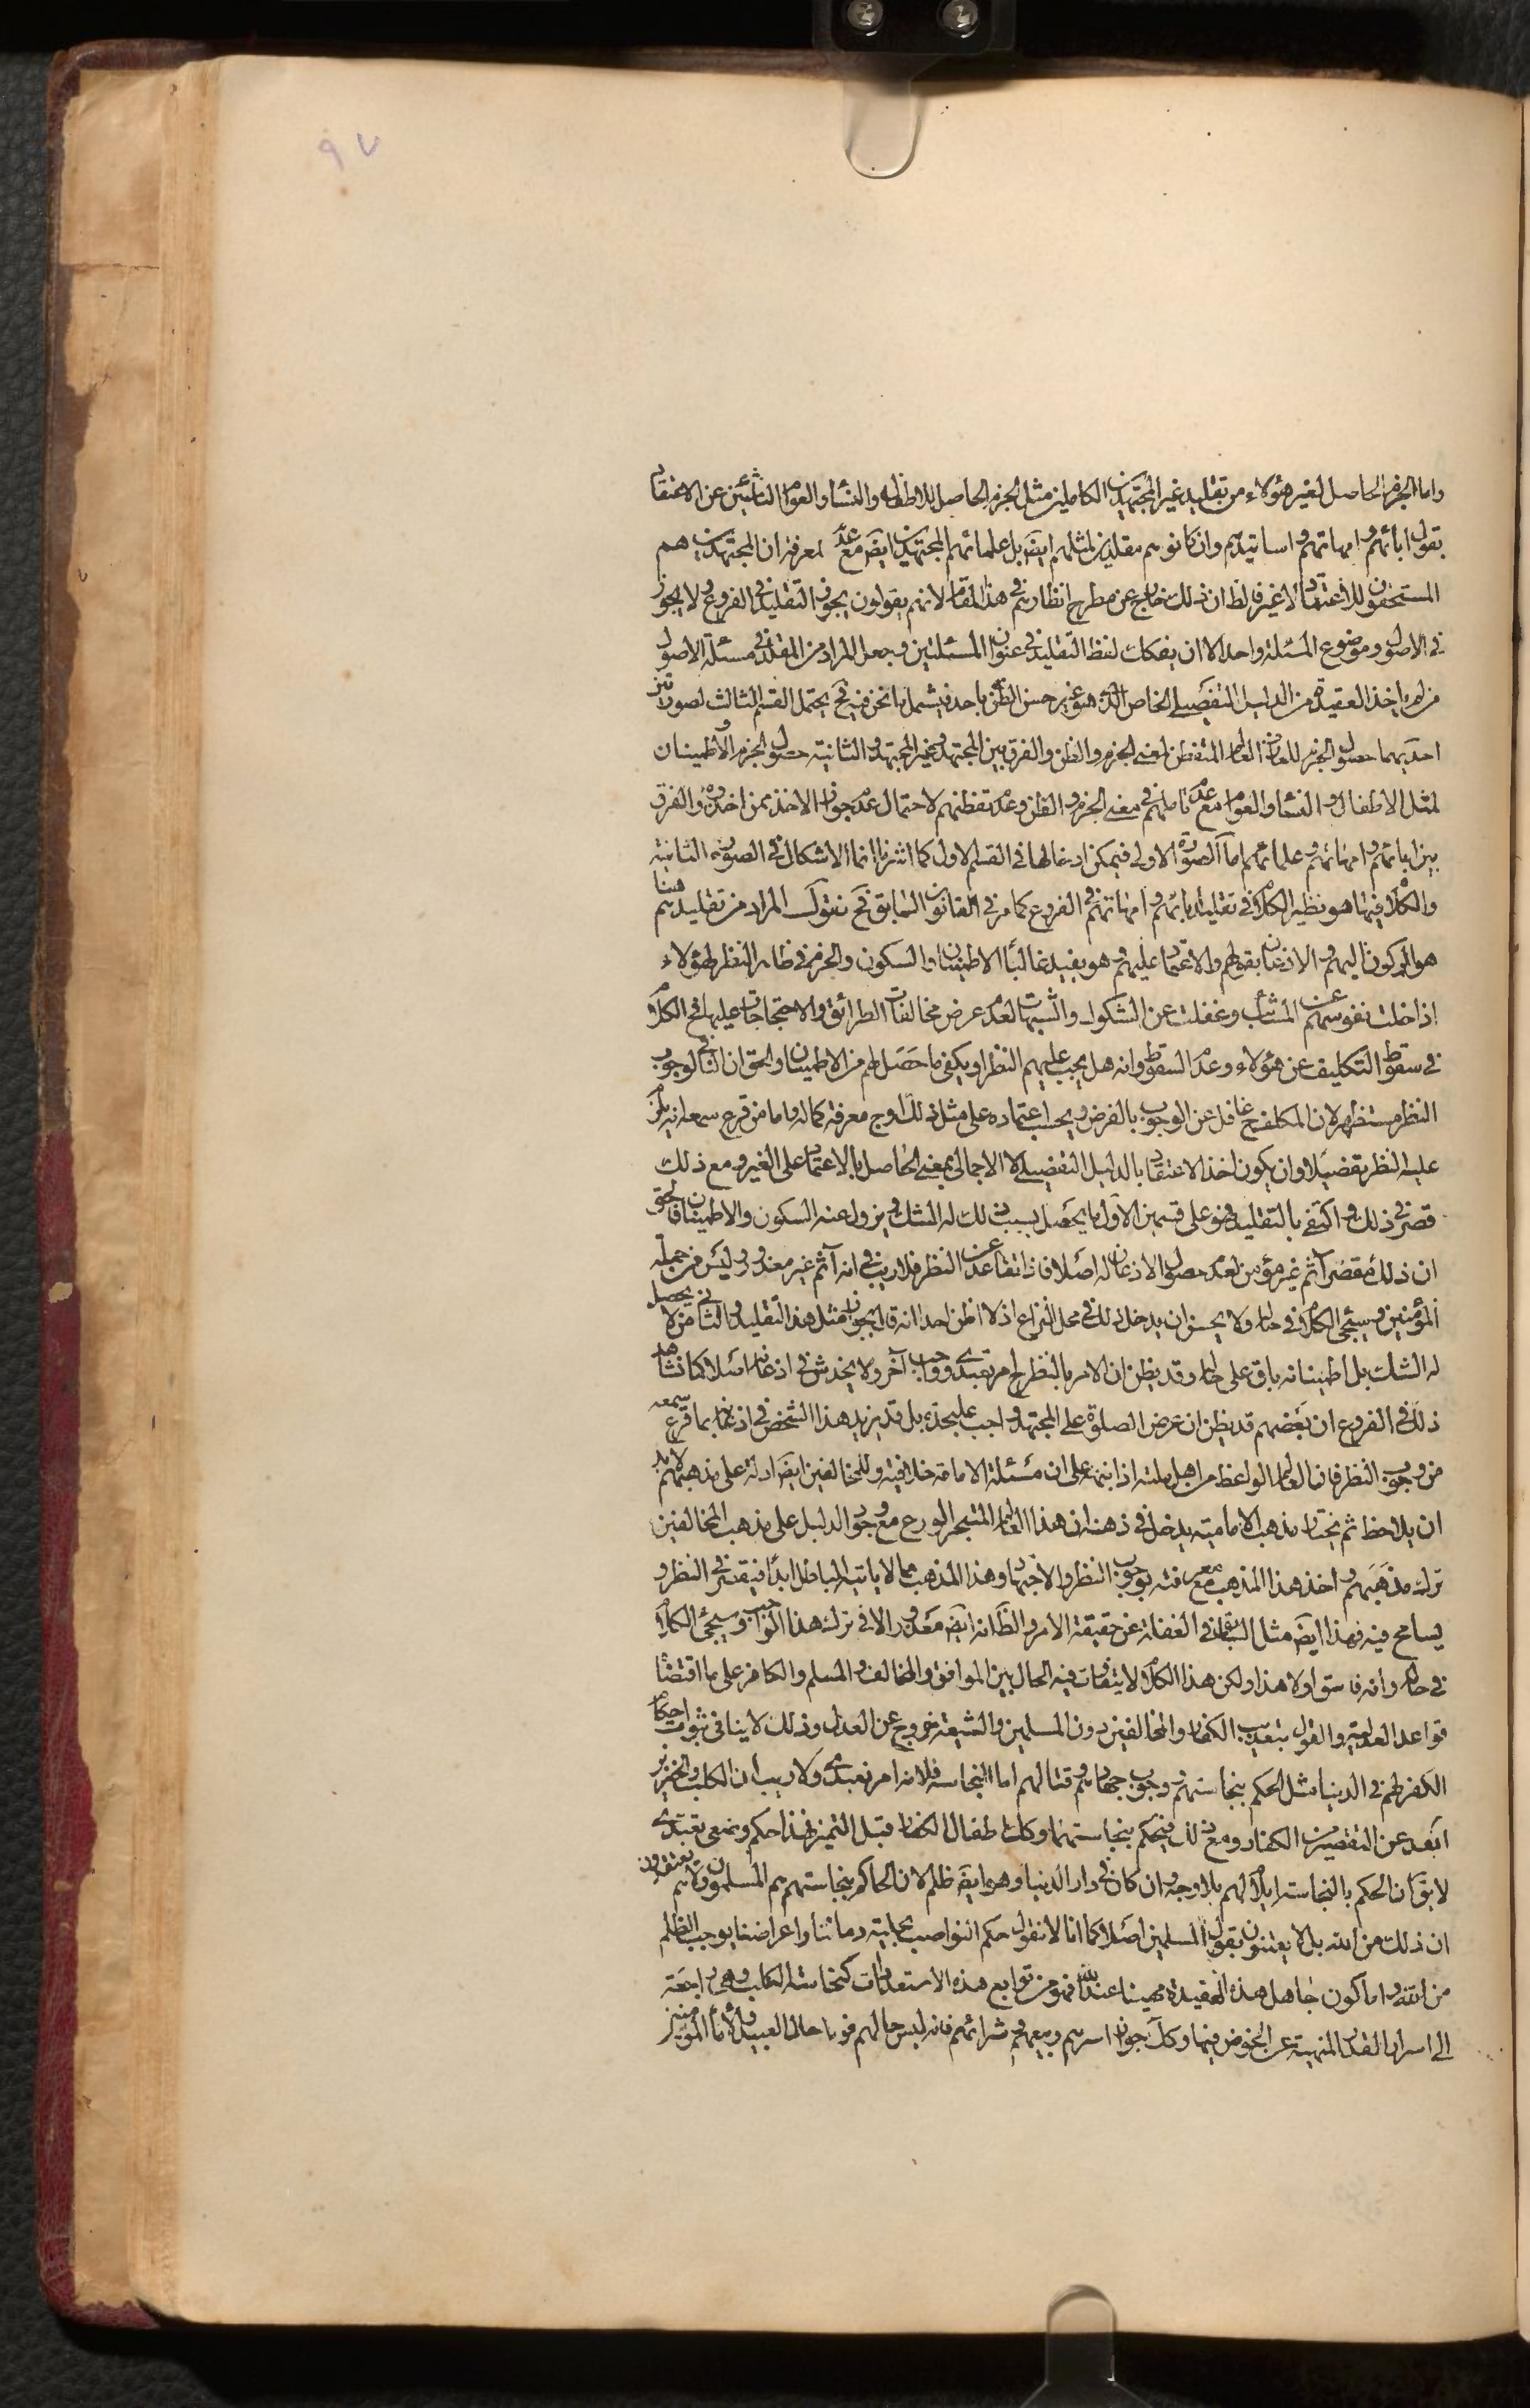 ٩٧
واما الجزم الحاصل لغير هؤلاء من تقليد غير المجتهدين الكاملين مثل الجزم الحاصل للاطفال والنساء والعوام الناشئين عن الاعتقاد
بقول ابائهم وامهاتهم واساتيدهم وان كانوا هم مقلدين لمثلهم ايض بل علمائهم المجتهدين ايض مع عدم لمعرفة ان المجتهدين هم
المستحقون للاعتماد لا غير فالظ ان ذلك خارج عن مطرح انظارهم في هذا المقام لانهم يقولون يجوز التقليد في الفروع ولا يجوز
في الاصول وموضوع المسئلة واحد الا ان يفكك لفظ التقليد في عنوان المسئلتين ويجعل المراد من المقلد في مسئلة الاصول
من لم ياخذ العقيدة من الدليل التفصيلي الخاص الذي هو غير حسن الظن باحد فيشمل ما نحن فيه فح يحتمل القسم الثالث لصورتين
احديهما حصول الجزم للعارف العالم المتفطن لمعنى الجزم والظن والفرق بين المجتهد وغير المجتهد والثانية حصول الجزم والاطمينان
لمثل الاطفال والنساء والعوام مع عدم تاملهم في معنى الجزم والظن وعدم تفطنهم لاحتمال عدم جواز الاخذ بمن اخذوه والفرق
بين ابائهم وامهاتهم وعلمائهم اما الصورة الاولى فيمكن ادخالها في القسم الاول كما اشرنا انما الاشكال في الصورة الثانية
والكلام فيها هو نظير الكلام في تقليد ابائهم وامهاتهم في الفروع كما مر في القانون السابق فح نقول المراد من تقليدهم هنا
هو الركون اليهم والاذعان بقولهم والاعتماد عليهم وهو يفيد غالبا الاطمينان والسكون والجزم في ظاهر النظر لهؤلاء
اذا خلت نفوسهم عن الشائب وغفلت عن الشكوك والشبهات لعدم عرض مخالفات الطرائق والاحتجاجات عليها فح الكلام
في سقوط التكليف عن هؤلاء وعدم السقوط وانه هل يجب عليهم النظر او يكفي ما حصل لهم من الاطمينان والحق ان النافي لوجوب
النظر مستظهر لان المكلف ح غافل عن الوجوب بالفرض ويحسب اعتماده على مثل ذلك اوج معرفة كماله واما من قرع سمعه انه يلزم
عليه النظر تفصيلا وان يكون اخذ الاعتقاد بالدليل التفصيلي لا الاجمالي بمعنى الحاصل بالاعتماد على الغير ومع ذلك
قصر في ذلك واكتفى بالتقليد فهو على قسمين الاول ما يحصل بسبب ذلك له الشك ويزول عنه السكون والاطمينان فالحق
ان ذلك مقصر آثم غير مؤمن لعدم حصول الاذعان له اصلا فاذا تقاعد عن النظر فلا ريب في انه آثم غير معذور وليس من جملة
المؤمنين وسيجئ الكلام في حاله ولا يحسن ان يدخل ذلك في محل النزاع اذ لا اظن احدا انه قال بجواز مثل هذا التقليد والثاني من لا يحصل
له الشك بل اطمينانه باق على حاله وقد يظن ان الامر بالنظر امر تعبدي وواجب آخر ولا يخدش في اذعانه اصلا كما نشاهد
ذلك في الفروع ان بعضهم قد يظن ان عرض الصلوة على المجتهد واجب عليحدة بل قد يزيد هذا الشخص في اذعانه بما قرع سمعه
من وجوب النظر فان العالم الواعظ من اهل ملته اذا نبهه على ان مسئلة الامامة خلافية وللمخالفين ايض ادلة على مذهبهم لا بد
ان يلاحظ ثم يختار مذهب الامامية يدخل في ذهنه ان هذا العالم المتبحر الورع مع وجود الدليل على مذهب المخالفين
ترك مذهبهم واخذ هذا المذهب مع معرفته بوجوب النظر والاجتهاد وهذا المذهب مما لا ياتيه الباطل ابدا فيقصر في النظر و
يسامح فيه فهذا ايض مثل السابق في الغفلة عن حقيقة الامر والظ انه ايض معذور الا في ترك هذا الواجب وسيجئ الكلام
في حاله وانه فاسق او لا هذا ولكن هذا الكلام لا يتفاوت فيه الحال بين الموافق والمخالف والمسلم والكافر على ما اقتضاه
قواعد العدلية والقول بتعذيب الكفار والمخالفين دون المسلمين والشيعة خروج عن العدل وذلك لا ينافي ثبوت احكام
الكفر لهم في الدنيا مثل الحكم بنجاستهم ووجوب جهادهم وقتالهم اما النجاسة فلانه امر تعبدي ولا ريب ان الكلب والخنزير
ابعد عن التقصير من الكفار ومع ذلك فيحكم بنجاستهما وكك اطفال الكفار قبل التميز فهذا حكم وضعي تعبدي
لا يق ان الحكم بالنجاسة ايلام لهم بلا وجه وان كان في دار الدنيا وهو ايض ظلم لان الحاكم بنجاستهم هم المسلمون وهم لا يعتقدون
ان ذلك من الله بل لا يعتنون بقول المسلمين اصلا كما انا لا نقول حكم النواصب بحلية دمائنا واعراضنا يوجب الظلم
من الله واما كون جاهل هذه العقيدة مهينا عند الله فهو من توابع هذه الاستعدادات كنجاسة الكلب وهي راجعة
الى اسرار القدر المنهية عن الخوض فيها وكك جواز اسرهم وبيعهم وشرائهم فانه ليس حالهم فوق حال العبيد والاماء المؤمنين